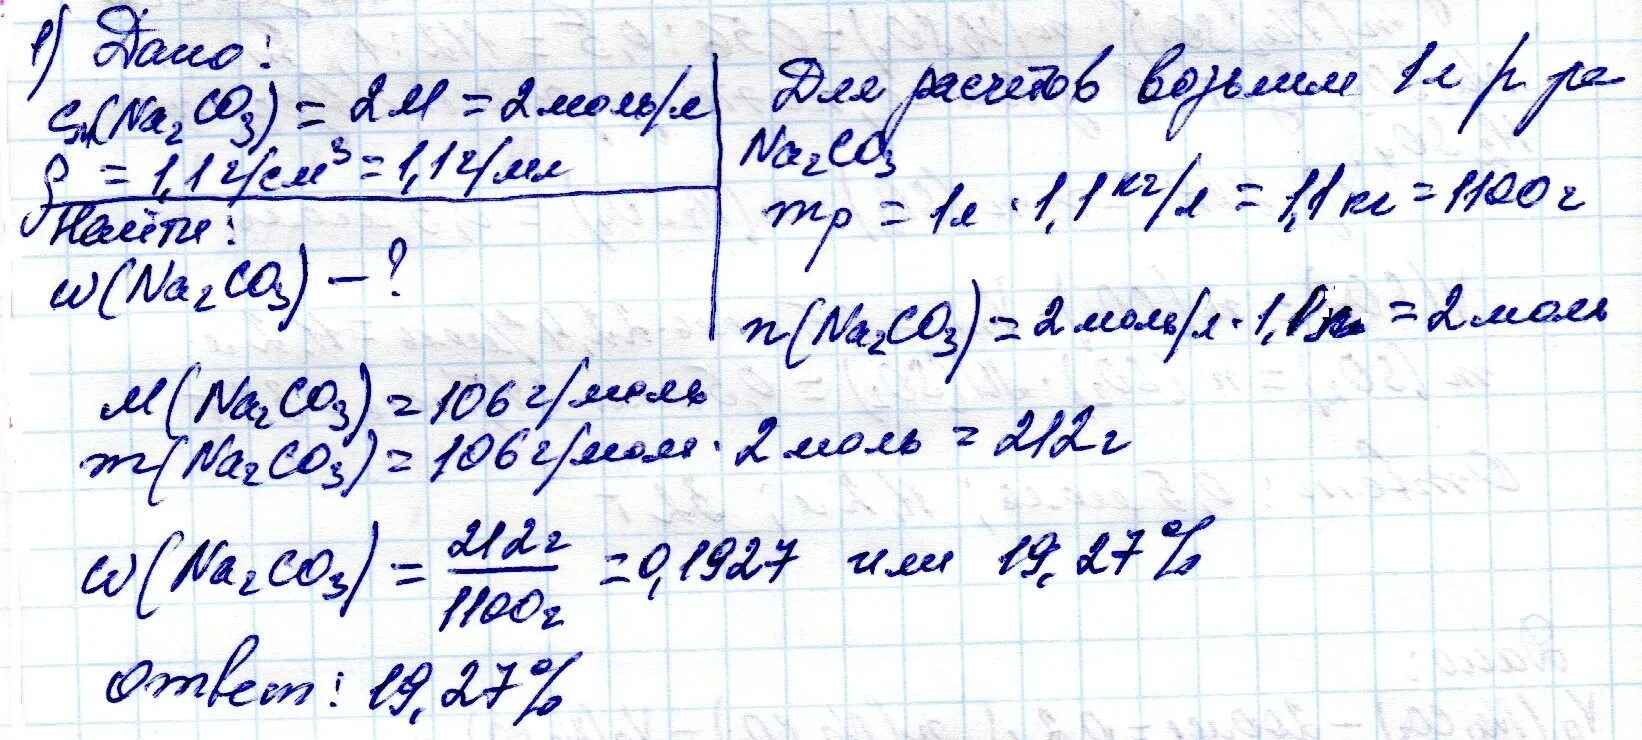 1) Дано:
Cм(Na₂CO₃) = 2М = 2моль/л
ρ = 1,1г/см³ = 1,1г/мл
Найти:
ω(Na₂CO₃) – ?
Для расчетов возьмем 1л р-ра
Na₂CO₃
mр = 1л · 1,1кг/л = 1,1кг = 1100г
n(Na₂CO₃) = 2моль/л · = 2моль
M(Na₂CO₃) = 106г/моль
m(Na₂CO₃) = 106г/моль · 2моль = 212г
ω(Na₂CO₃) = 212г / 1100г = 0,1927 или 19,27%
Ответ: 19,27%